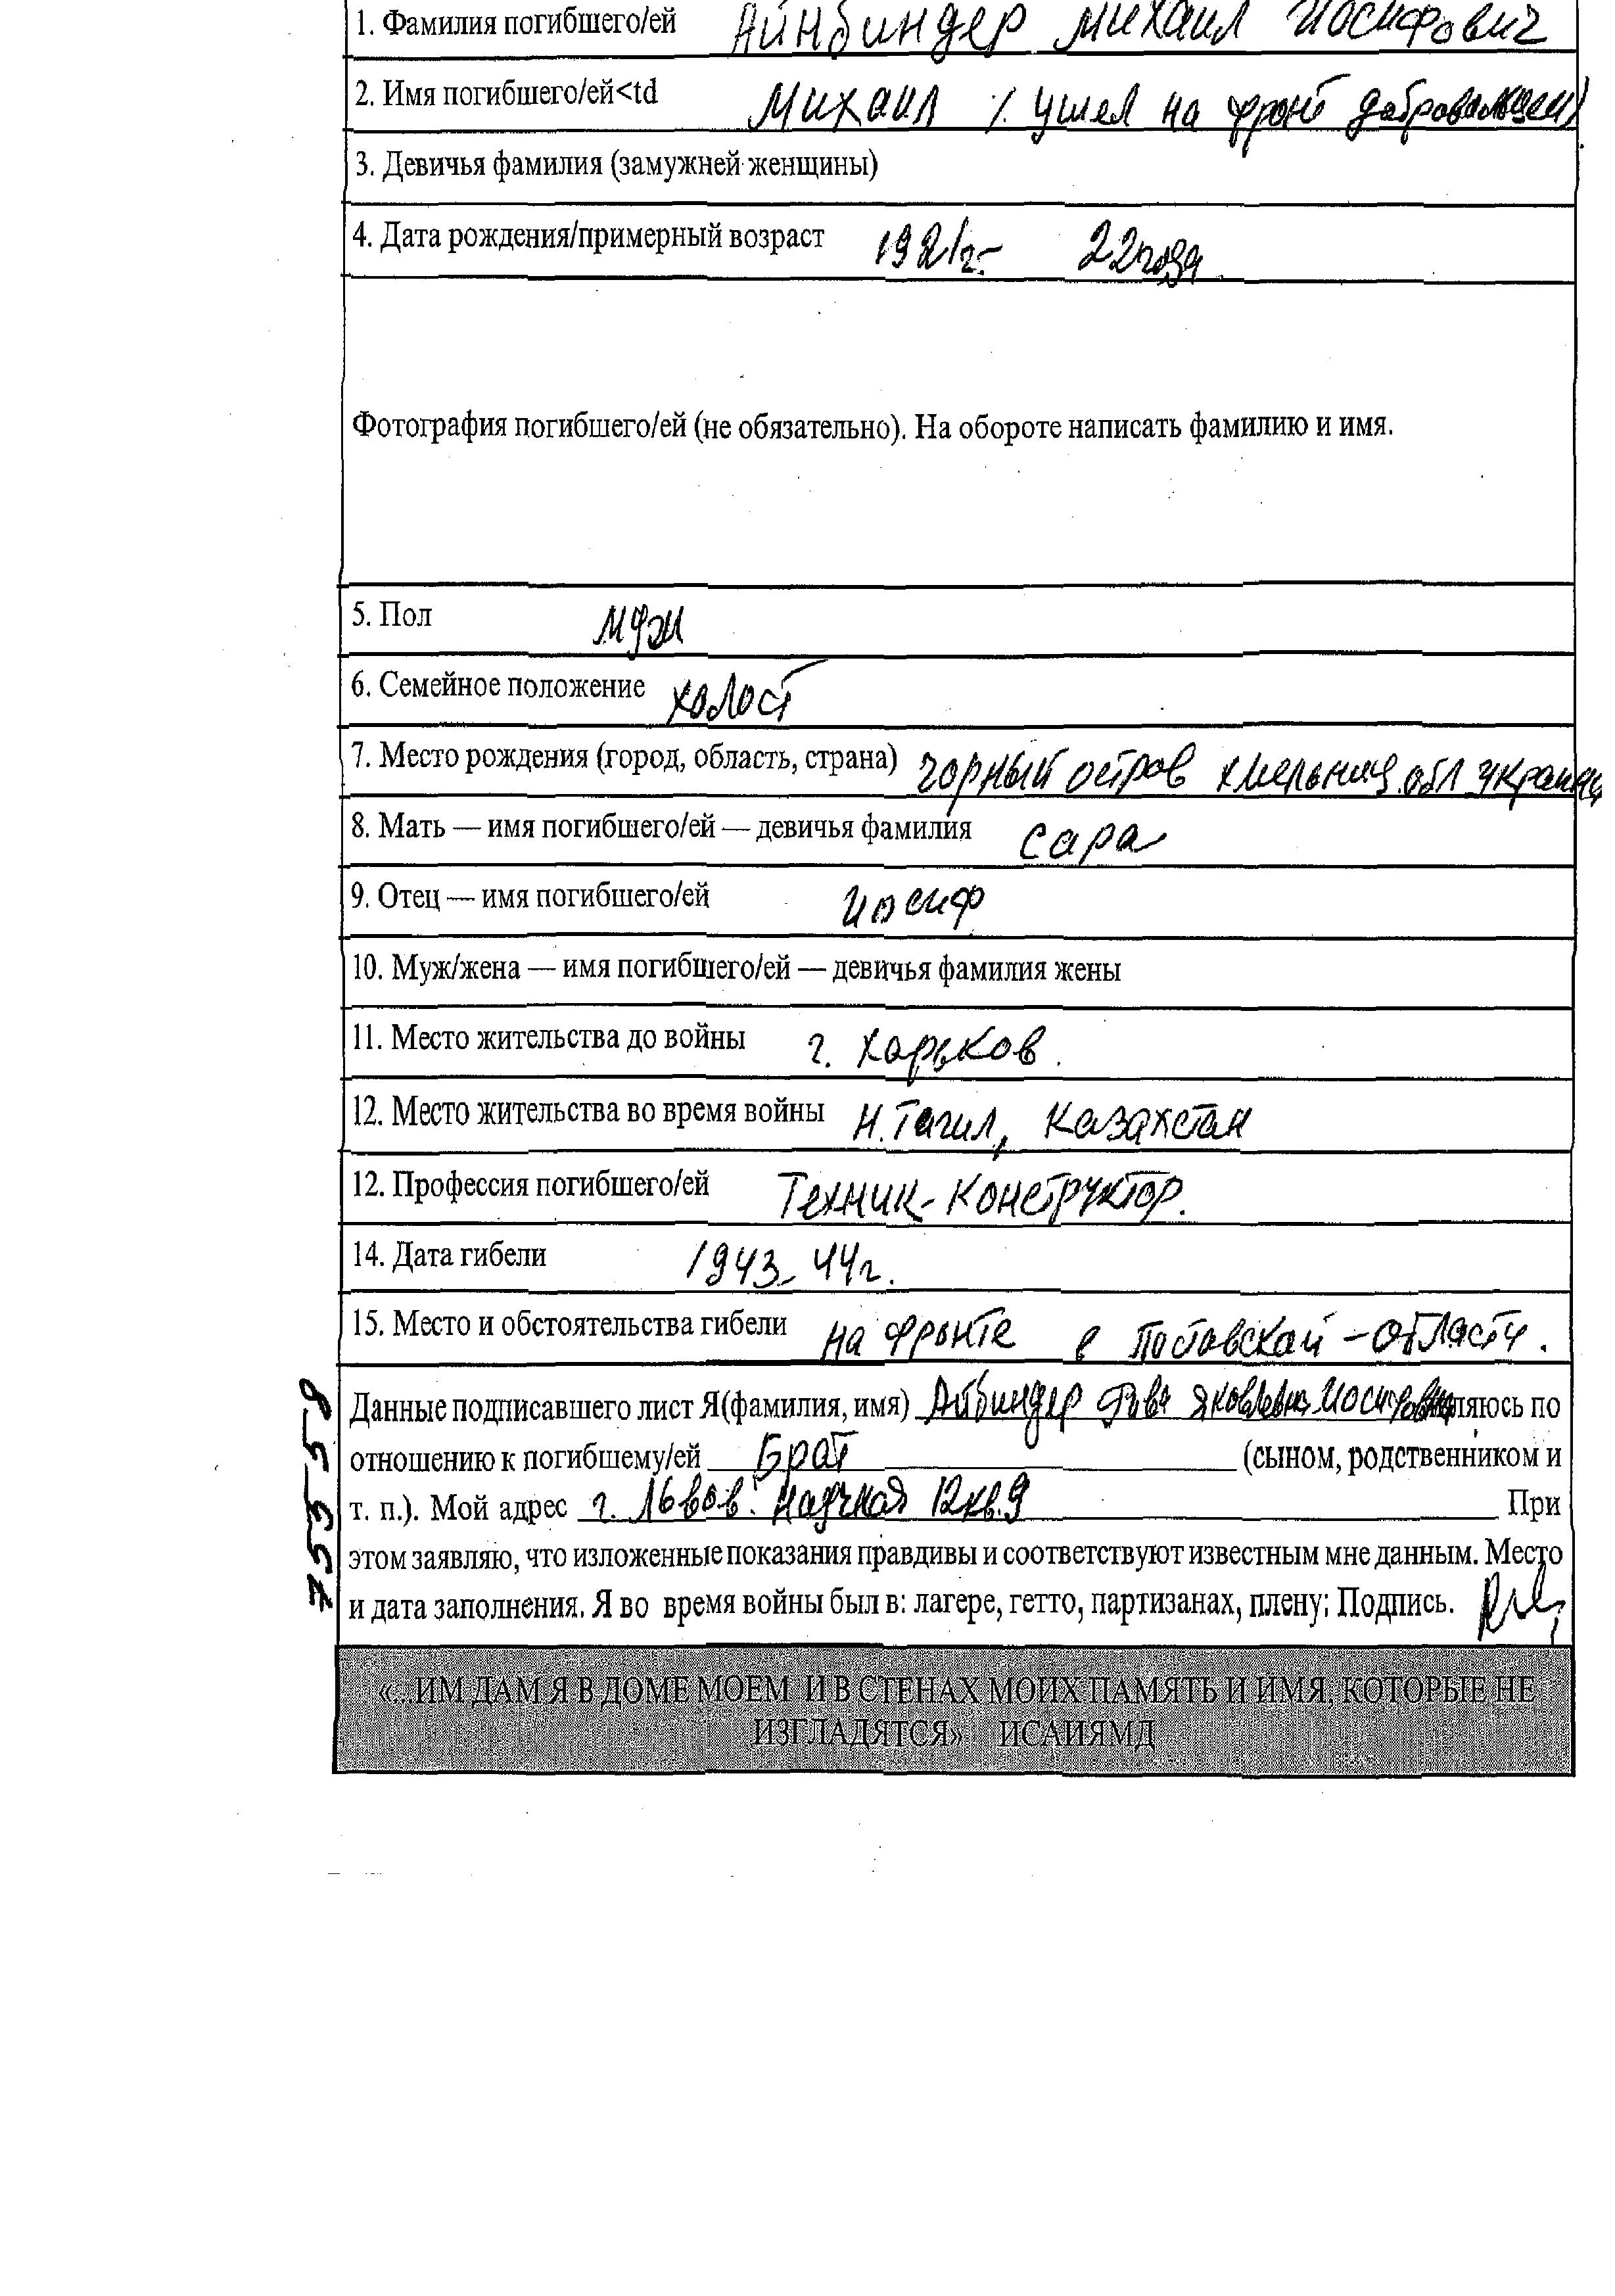 1. Фамилия погибшего/ей Айнбиндер Михаил Иосифович
2. Имя погибшего/ей<td Михаил (ушел на фронт добровольцем)
3. Девичья фамилия (замужней женщины)
4. Дата рождения/примерный возраст 1921г- 22года
Фотография погибшего/ей (не обязательно). На обороте написать фамилию и имя.
5. Пол муж
6. Семейное положение холост
7. Место рождения (город, область, страна) Чорный остров Хмельниц. обл Украина
8. Мать — имя погибшего/ей — девичья фамилия Сара
9. Отец — имя погибшего/ей Иосиф
10. Муж/жена — имя погибшего/ей — девичья фамилия жены
11. Место жительства до войны г. Харьков.
12. Место жительства во время войны Н.Тагил, Казахстан
12. Профессия погибшего/ей Техник-Конструктор.
14. Дата гибели 1943-44г.
15. Место и обстоятельства гибели на фронте в области.
Данные подписавшего лист Я(фамилия, имя) Айбиндер ляюсь по
отношению к погибшему/ей Брат (сыном, родственником и
т. п.). Мой адрес г. Львов. Научная 12кв.9 При
этом заявляю, что изложенные показания правдивы и соответствуют известным мне данным. Место
и дата заполнения. Я во время войны был в: лагере, гетто, партизанах, плену; Подпись.
«...ИМ ДАМ Я В ДОМЕ МОЕМ И В СТЕНАХ МОИХ ПАМЯТЬ И ИМЯ, КОТОРЫЕ НЕ
ИЗГЛАДЯТСЯ» ИСАИЯМД